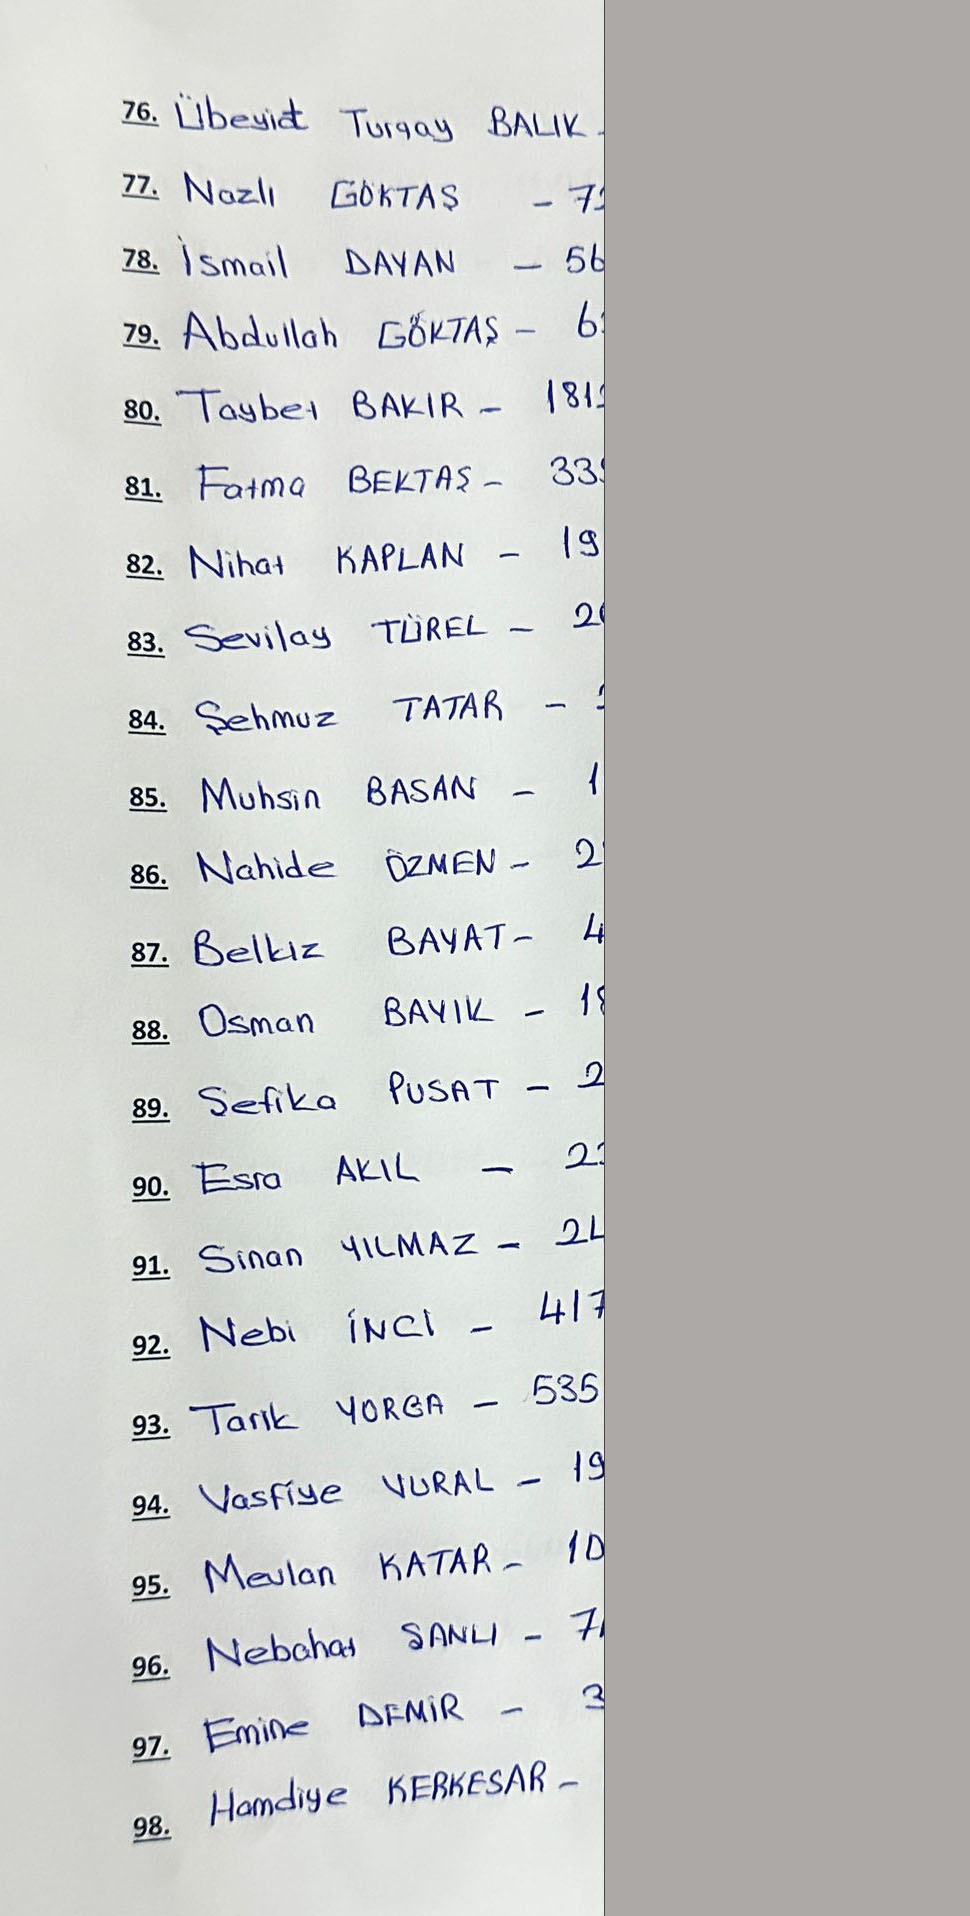 76. Übeyid Turgay BALIK -
77. Nazlı GÖKTAŞ - 7
78. İsmail DAYAN - 56
79. Abdullah GÖKTAŞ - 6
80. Taybet BAKIR - 181
81. Fatma BEKTAŞ - 33
82. Nihat KAPLAN - 19
83. Sevilay TÜREL - 2
84. Şehmuz TATAR -
85. Muhsin BASAN - 1
86. Nahide ÖZMEN - 2
87. Belkız BAYAT - 4
88. Osman BAYIK - 18
89. Sefika PUSAT - 2
90. Esra AKIL - 2
91. Sinan YILMAZ - 2
92. Nebi İNCİ - 417
93. Tarık YORGA - 535
94. Vasfiye VURAL - 19
95. Mevlan KATAR - 10
96. Nebahat ŞANLI - 7
97. Emine DEMİR - 3
98. Hamdiye KERKESAR -